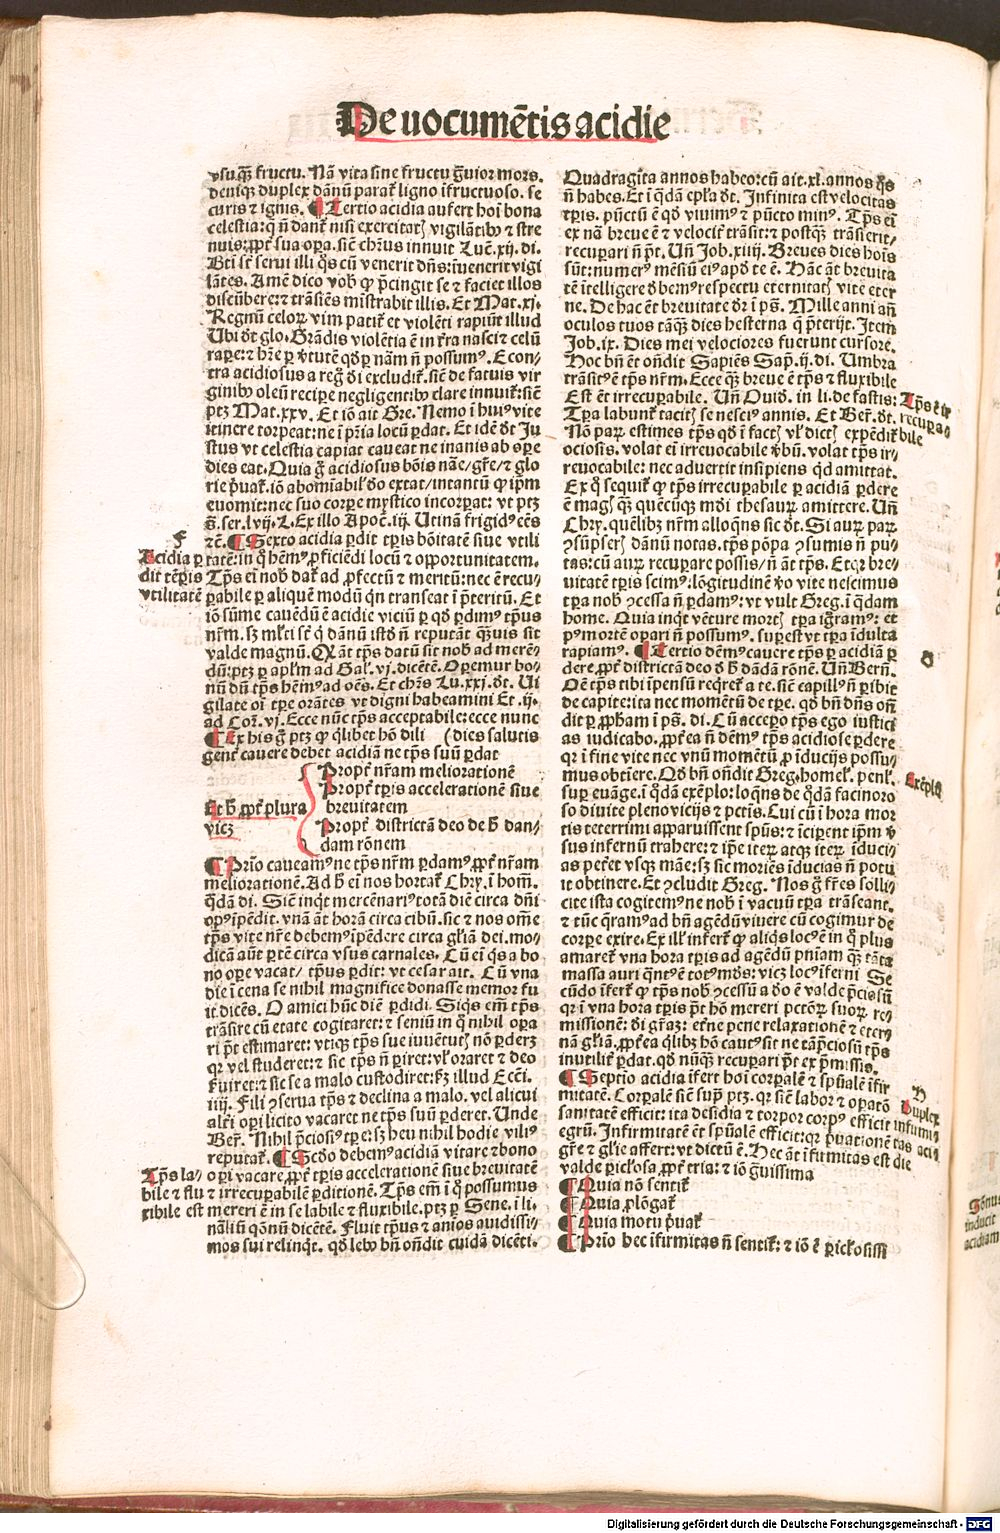 De uocumētis acidie
vsu q̄ꝫ fructu. Nā vita sine fructu ḡuior mors.
deniqꝫ duplex dānū parat ligno īfructuoso. se
curis ⁊ ignis. ¶ Tertio acidia aufert hoī bona
celestia: q̄ n̄ dant nisi exercitatꝭ vigilātibꝰ ⁊ stre
nuis: ꝓpt sua oꝑa. siē chr̄us innuit Luc̄. xij. di.
Bti st̄ serui illi q̄s cū venerit dn̄s: īuenerit vigi
lātes. Amē dico vob̄ ꝙ p̄cingit se ⁊ faciet illos
discūbere: ⁊ trāsiēs mīstrabit illis. Et Mat. xj.
Regnū celoꝝ vim patit̄ et violēti rapiūt illud
Ubi dt̄ glo. Grādis violētia ē in tr̄a nasci ⁊ celū
rapere: ⁊ hr̄e ꝑ v̄tutē qd̄ ꝑ nām n̄ possumꝰ. E con/
tra acidiosus a regꝰ dī excludit̄. siē de fatuis vir
ginibꝰ oleū recipe negligentibꝰ clare innuit̄: siē
ptꝫ Mat. xxv. Et iō ait Gre. Nemo ī huiꝰ vite
itinere torpeat: ne ī pr̄ia locū ꝑdat. Et idē dt̄ Ju
stus vt celestia capiat caueat ne inanis ab spe
dies eat. Quia ḡ acidiosus bōis nāe/ gr̄e/ ⁊ glo
rie p̄uat̄. iō abomīabil̄ dō extat/ intantū ꝙ ip̄m
euomit: nec suo corꝑe mystico incorꝑat: vt ptꝫ
s̄. ser. lvij. L. Ex illo Apoc̄. iij. Utinā frigidꝰ eēs
⁊c̄. ¶ Sexto acidia ꝑdit tꝑis bōitatē siue vtili
tatē: in q̄ hēmꝰ ꝓficiēdi locū ⁊ opportunitatem.
Tp̄s ei nob̄ dat̄ ad ꝓfectū ⁊ meritū: nec ē recu/
ꝑabile ꝑ aliquem modū qn̄ transeat ī p̄teritū. Et
iō sūme cauēdū ē acidie viciū ꝑ qd̄ ꝑdimꝰ tp̄us
nr̄m. sꝫ ml̄ti sē q̄ dānū istd̄ n̄ reputāt q̄ꝫuis sit
valde magnū. Q at̄ tp̄s datū sit nob̄ ad merē/
dū: ptꝫ ꝑ apl̄m ad Gal̄. vj. dicētē. Oꝑemur bo/
nū dū tp̄s hēmꝰ ad oēs. Et chr̄s Lu. xxj. dt̄. Ui
gilate oī tꝑe orātes vt digni habeamini Et .ij.
ad Cor̄. vj. Ecce nūc tp̄s acceptabile: ecce nunc
¶ Ex his ḡ ptꝫ ꝙ q̄libet hō dili (dies salutis
gent̄ cauere debet acidiā ne tp̄s suū ꝑdat
Propt̄ nr̄am meliorationē
Propt̄ tꝑis accelerationē siue
Et h̄ ꝓpt̄ plura breuitatem
vicꝫ Propt̄ districtā deo de h̄ dan/
dam rōnem
¶ Prio caueamꝰ ne tp̄s nr̄m ꝑdamꝰ ꝓpt̄ nr̄am
meliorationē. Ad h̄ ei nos hortat̄ Chry. ī hom̄.
q̄dā di. Siē inqt̄ mercēnariꝰ totā diē circa dn̄i
opꝰ īpēdit. vnā āt horā circa cibū. sic ⁊ nos om̄e
tp̄s vite nr̄e debemꝰ īpēdere circa gl̄iā dei. mo/
dicā aūt ꝑtē circa vsus carnales. Cū ei q̄s a bo
no oꝑe vacat/ tp̄us ꝑdit: vt cesar ait. Cū vna
die ī cena se nihil magnifice donasse memor fu
it dicēs. O amici hūc diē ꝑdidi. Siq̄s em̄ tp̄s
trāsire cū etate cogitaret: ⁊ seniū in q̄ nihil oꝑa
ri pt̄ estimaret: vtiqꝫ tp̄s sue iuuētutꝭ nō ꝑderꝫ
qr̄ vel studeret: ⁊ sic tp̄s n̄ ꝑiret: vl̄ oraret ⁊ deo
s̄uiret: ⁊ sic se a malo custodiret: sꝫ illud Ecci.
iiij. Fili ꝯserua tp̄s ⁊ declina a malo. vel alicui
alt̄i oꝑi licito vacaret ne tp̄s suū ꝑderet. Unde
Ber̄. Nihil p̄ciosiꝰ tꝑe: sꝫ heu nihil hodie viliꝰ
reputat̄. ¶ Scd̄o debemꝰ acidiā vitare ⁊ bono
oꝑi vacare ꝓpt̄ tꝑis accelerationē siue breuitatē
⁊ irrecuꝑabilē ꝑditionē. Tp̄s em̄ ī q̄ possumus
mereri ē in se labile ⁊ fluxibile. ptꝫ ꝑ Sene. ī li.
nāliū q̄onū dicētē. Fluit tp̄us ⁊ anīos auidissi/
mos sui relinqt̄. qd̄ lebꝰ bn̄ on̄dit cuidā dicēti.
f
Acidia ꝑ
dit tēꝑis
vtilitatē
Tp̄s la/
bile ⁊ flu
xibile est
Quadragīta annos habeo: cū ait. xl. annos q̄s
n̄ habes. Et ī q̄dā epl̄a dt̄. Infinita est velocitas
tꝑis. pūctū ē qd̄ viuimꝰ ⁊ pūcto minꝰ. Tp̄s ei
ex nā breue ē ⁊ velocit̄ trāsit: ⁊ postq̄ꝫ trāsierit/
recuꝑari n̄ pt̄. Un̄ Job. xiiij. Breues dies hoīs
sūt: numerꝰ mēsiū eiꝰ apd̄ te ē. Hāc āt breuita
tē ītelligere dꝫ bemꝰ respectu eternitatꝭ vite eter
ne. De hac ēt breuitate dr̄ ī ps̄. Mille anni an̄
oculos tuos tāq̄ꝫ dies hesterna q̄ p̄terijt. Item
Job. ix. Dies mei velociores fuerunt cursore.
Hoc bn̄ ēt on̄dit Sapiēs Sap̄. ij. di. Umbra
trāsitꝰ ē tp̄s nr̄m. Ecce q̄ꝫ breue ē tp̄s ⁊ fluxibile
Est ēt irrecuꝑabile. Un̄ Ouid̄. in li. de fastis:
Tꝑa labunt̄ tacitꝭ se nescis annis. Et Ber̄. dt̄.
Nō paꝝ estimes tp̄s qd̄ ī factꝭ vl̄ dictꝭ expēdit̄
ociosis. volat ei irreuocabile v̄bū. volat tp̄s ir/
reuocabile: nec aduertit insipiens qd̄ amittat.
Ex q̄ sequit̄ ꝙ tp̄s irrecuꝑabile ꝑ acidiā ꝑdere
ē magꝭ q̄ꝫ quecūqꝫ mōi thesauꝝ amittere. Un̄
Chry. quēlibꝫ nr̄m alloq̄ns sic dt̄. Si auꝝ paꝝ
ꝯsūpserꝭ dānū notas. tp̄s pōpa ꝯsumis n̄ pu/
tas: cū auꝝ recuꝑare possis/ n̄ āt tp̄s. Et qr̄ bre/
uitatē tꝑis scimꝰ: lōgitudinē v̄o vite nescimus
tꝑa nob̄ ꝯcessa n̄ ꝑdamꝰ: vt vult Greg. ī q̄dam
home. Quia inqt̄ vēture mortꝭ tꝑa iḡramꝰ: et
pꝰ mortē oꝑari n̄ possumꝰ. suꝑest vt tꝑa īdulta
rapiamꝰ. ¶ Tertio dem̄ꝰ cauere tp̄s ꝑ acidiā ꝑ
dere ꝓpt̄ districtā deo d̄ h̄ dādā rōnē. Un̄ Bern̄.
Oē tp̄s tibi īpensū reqret̄ a te. siē capillꝰ n̄ ꝑibit
de capite: ita nec momētū de tꝑe. qd̄ bn̄ dn̄s on̄
dit ꝑ ꝓph̄am ī ps̄. di. Cū accepo tp̄s ego iustici
as iudicabo. ꝓpt̄ea n̄ dem̄ꝰ tp̄s acidiose ꝑdere
qr̄ ī fine vite nec vnū momētū ꝓ īducijs possu/
mus obtīere. Qd̄ bn̄ on̄dit Greg. homel̄. penl̄.
suꝑ euāge. ī q̄dā exēplo: loqns de q̄dā facinoro
so diuite pleno vicijs ⁊ pctīs. Cui cū ī hora mor
tis teterrimi apparuissent sp̄us: ⁊ īciꝑent ip̄m v̄
sus infernū trahere: ⁊ ip̄e iteꝝ atqꝫ iteꝝ īduci/
as peret̄ vsqꝫ māe: sꝫ sic moriēs īducias n̄ potu
it obtinere. Et ꝯcludit Greg. Nos ḡ fr̄es solli
cite ista cogitemꝰ ne nob̄ ī vacuū tꝑa trāseant.
⁊ tūc q̄ramꝰ ad bn̄ agēdū viuere cū cogimur de
corꝑe exire. Ex ill̄ infert̄ ꝙ aliq̄s locꝰ ē in q̄ plus
amaret̄ vna hora tꝑis ad agēdū pn̄iam q̄ꝫ tāta
massa auri q̄ntꝰ ē totꝰ mōs: vicꝫ locꝰ īferni Se
cūdo īfert̄ ꝙ tp̄s nob̄ ꝯcessū a dō ē valde p̄ciosū
qr̄ ī vna hora tꝑis pt̄ hō mereri pctōꝝ suoꝝ re/
missionē: dī gr̄aꝫ: et̄ne pene relaxationē ⁊ eter/
nā gl̄iā. ꝓpt̄ea q̄libꝫ hō cautꝰ sit ne tāp̄ciosū tp̄s
inutilit̄ ꝑdat. qd̄ nūq̄ꝫ recuꝑari pt̄ ex p̄missis.
¶ Septio acidia īfert hoī corꝑalē ⁊ sp̄ualē īfir
mitatē. Corꝑalē siē sup̄ ptꝫ. qr̄ siē labor ⁊ oꝑatō
sanitatē efficit: ita desidia ⁊ torpor corpꝰ efficit
egrū. Infirmitatē ēt sp̄ualē efficit: qr̄ p̄uationē
gr̄e ⁊ gl̄ie affert: vt dictū ē. Hec āt īfirmitas est
valde ꝑicl̄osa ꝓpt̄ tria: ⁊ iō ḡuissima
¶ Quia nō sentit̄
¶ Quia ꝓlōgat̄
¶ Quia motu p̄uat̄
¶ Prio hec īfirmitas n̄ sentit̄: ⁊ iō ē ꝑicl̄osissi
Tp̄s ē ir
recuꝑa/
bile
Exēplū
Duplex